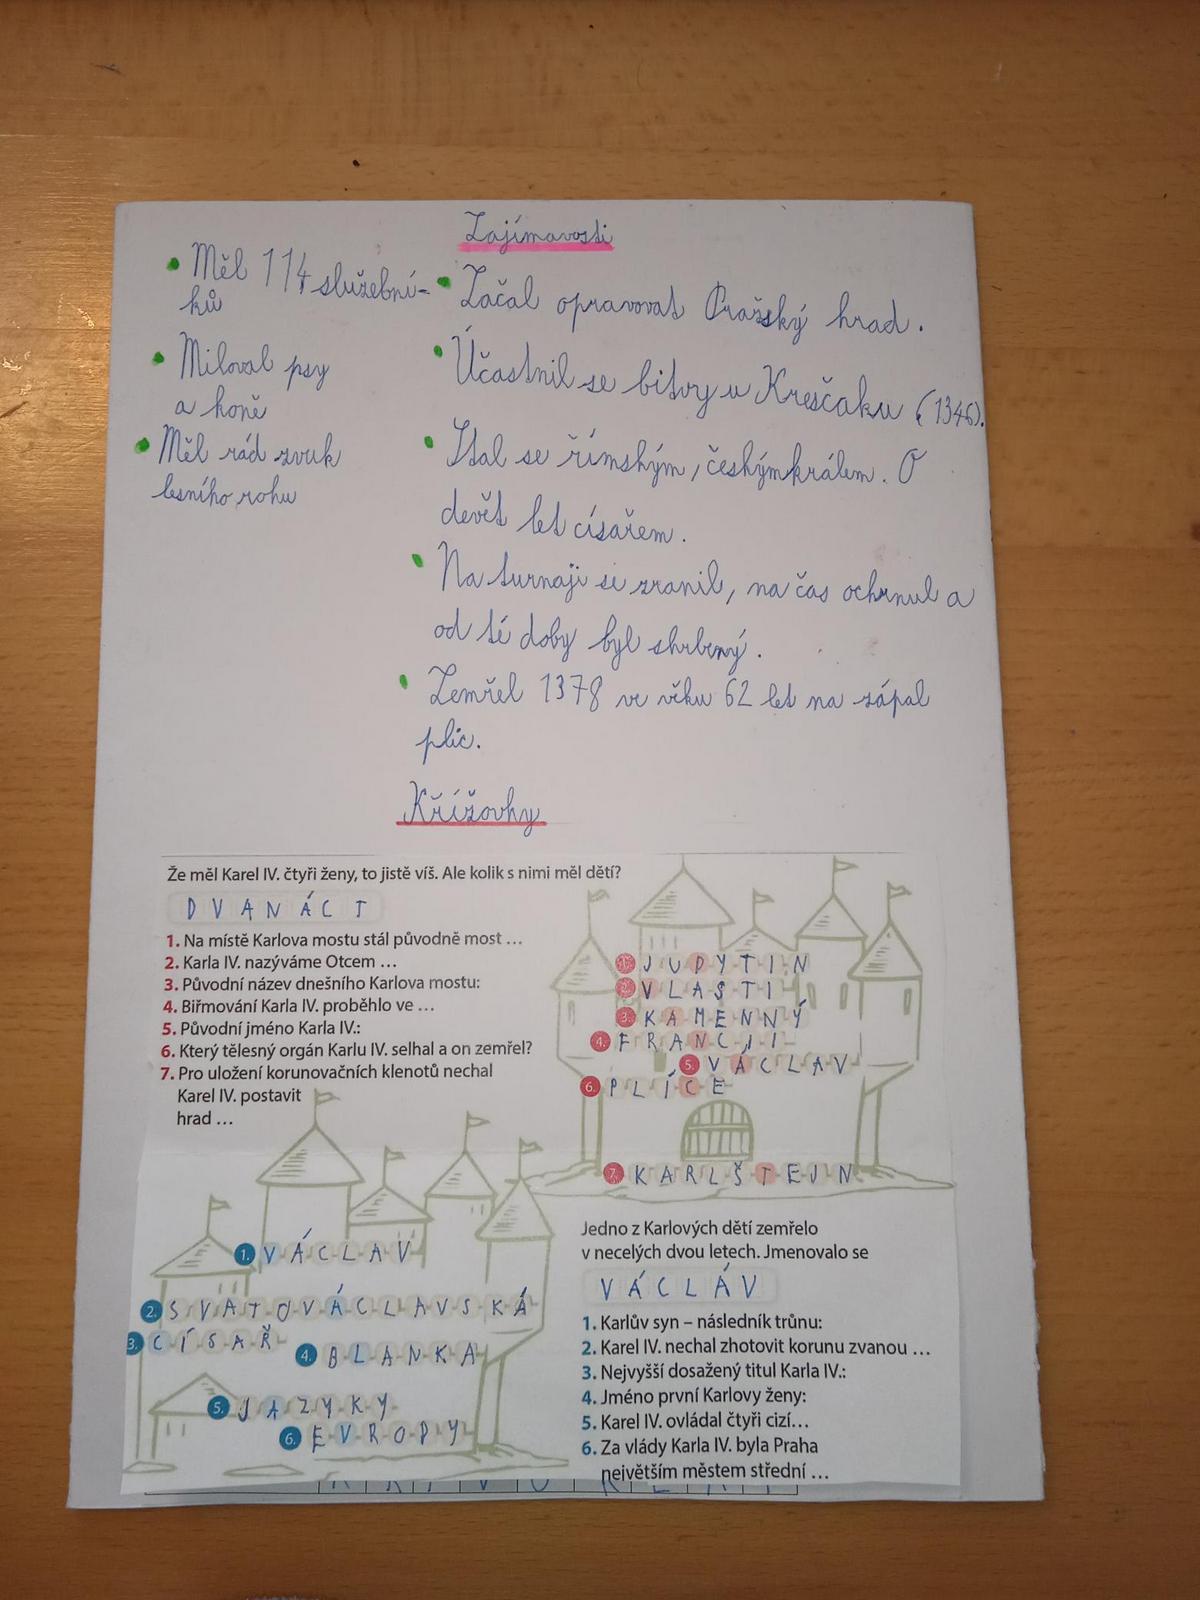 Zajímavosti
• Měl 114 služební-
ků
• Miloval psy
a koně
• Měl rád zvuk
lesního rohu
• Začal opravovat Pražský hrad.
• Účastnil se bitvy u Kreščaku (1346).
• Stal se římským, českým králem. O
devět let císařem.
• Na turnaji se zranil, na čas ochrnul a
od té doby byl shrbený.
• Zemřel 1378 ve věku 62 let na zápal
plic.
Křížovky
Že měl Karel IV. čtyři ženy, to jistě víš. Ale kolik s nimi měl dětí?
DVANÁCT
1. Na místě Karlova mostu stál původně most ...
2. Karla IV. nazýváme Otcem ...
3. Původní název dnešního Karlova mostu:
4. Biřmování Karla IV. proběhlo ve ...
5. Původní jméno Karla IV.:
6. Který tělesný orgán Karlu IV. selhal a on zemřel?
7. Pro uložení korunovačních klenotů nechal
Karel IV. postavit
hrad ...
1. JUDYTIN
2. VLASTI
3. KAMENNÝ
4. FRANCII
5. VÁCLAV
6. PLÍCE
7. KARLŠTEJN
1. VÁCLAV
2. SVATOVÁCLAVSKÁ
3. CÍSAŘ
4. BLANKA
5. JAZYKY
6. EVROPY
Jedno z Karlových dětí zemřelo
v necelých dvou letech. Jmenovalo se
VÁCLÁV
1. Karlův syn – následník trůnu:
2. Karel IV. nechal zhotovit korunu zvanou ...
3. Nejvyšší dosažený titul Karla IV.:
4. Jméno první Karlovy ženy:
5. Karel IV. ovládal čtyři cizí...
6. Za vlády Karla IV. byla Praha
největším městem střední ...